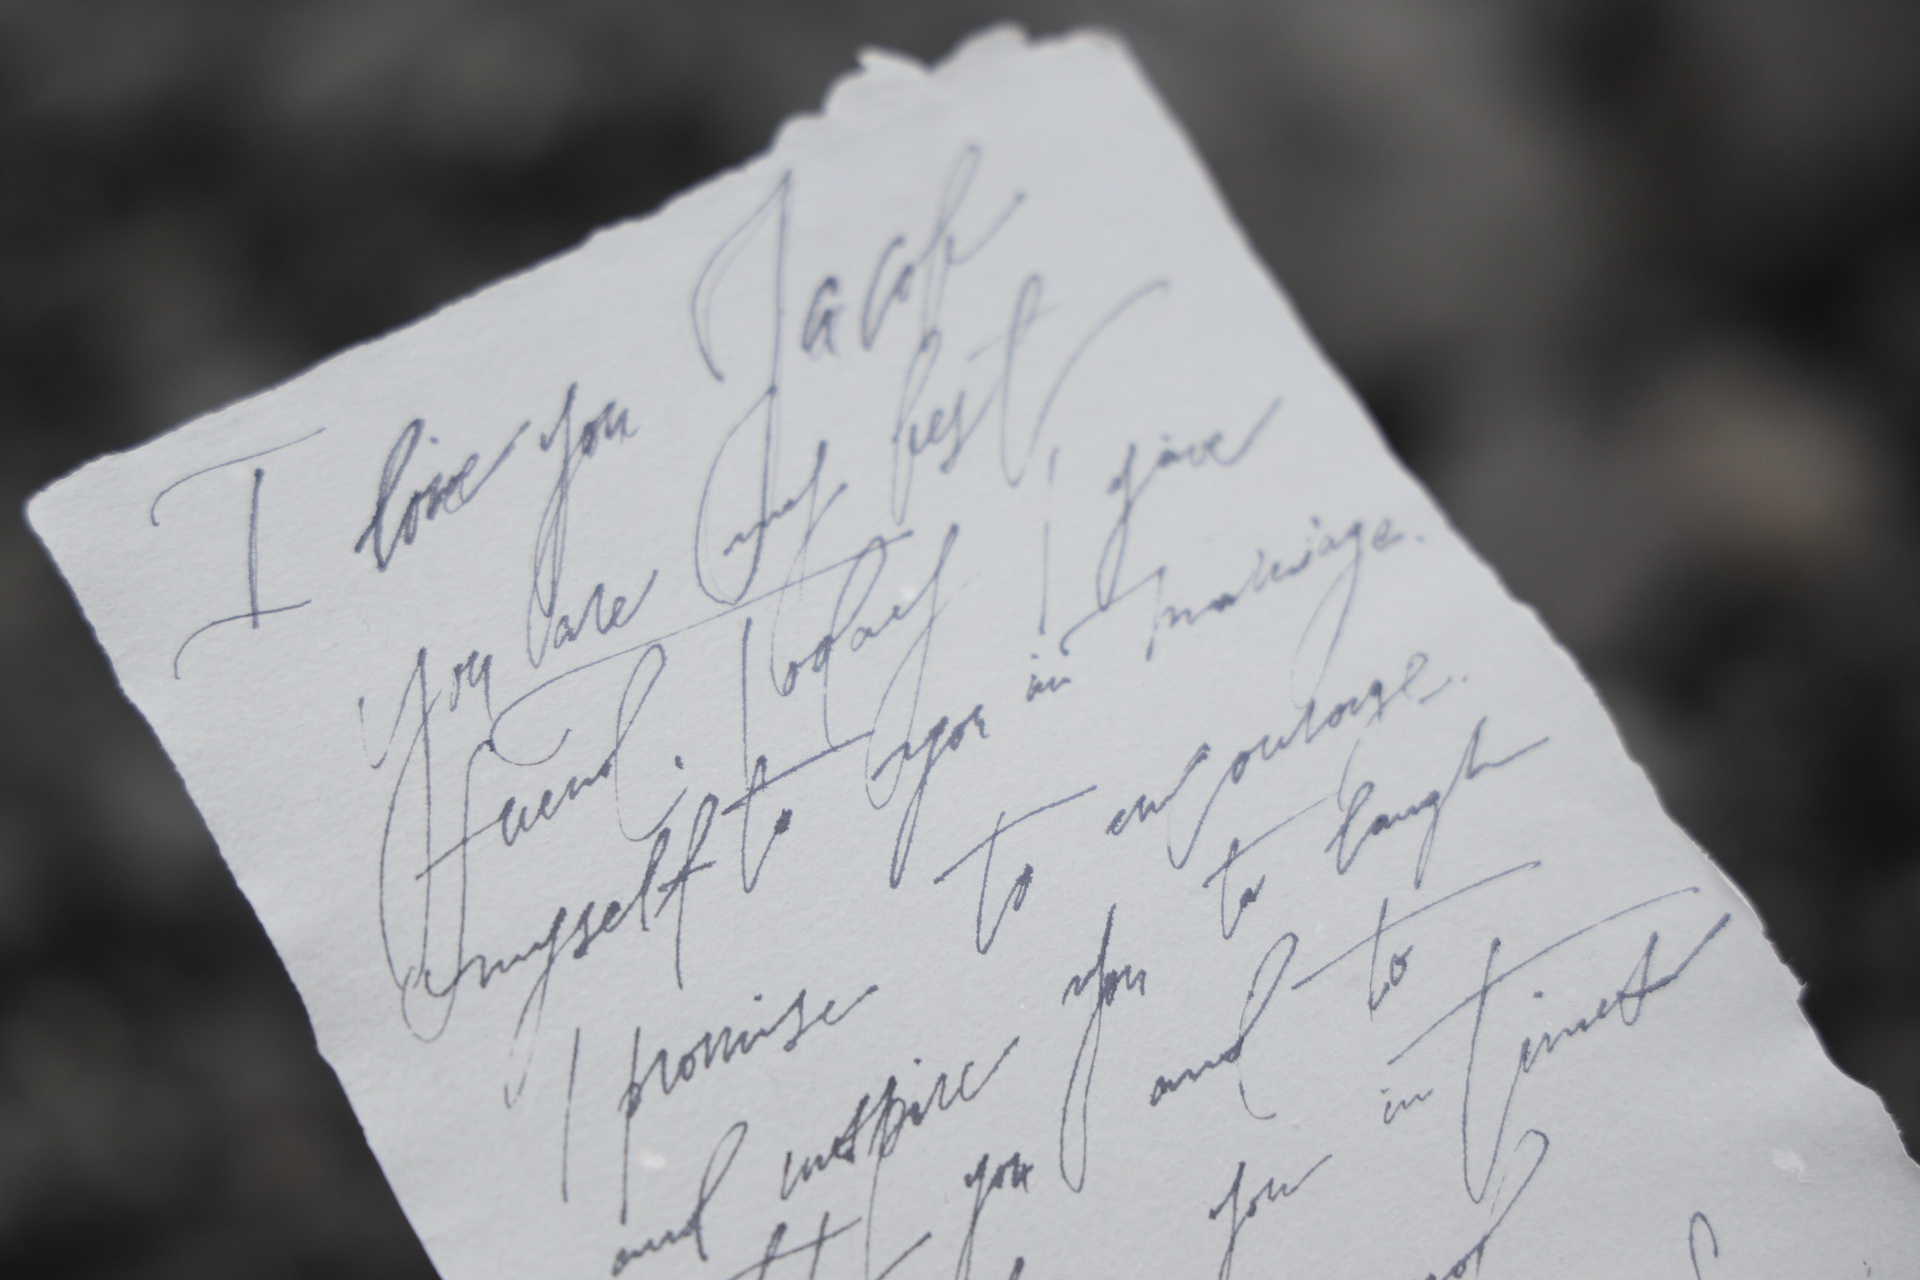 I love you Jacob
You are my best
friend. Today I give
myself to you in marriage.
I promise to encourage
and inspire you to laugh
you and to
you in times